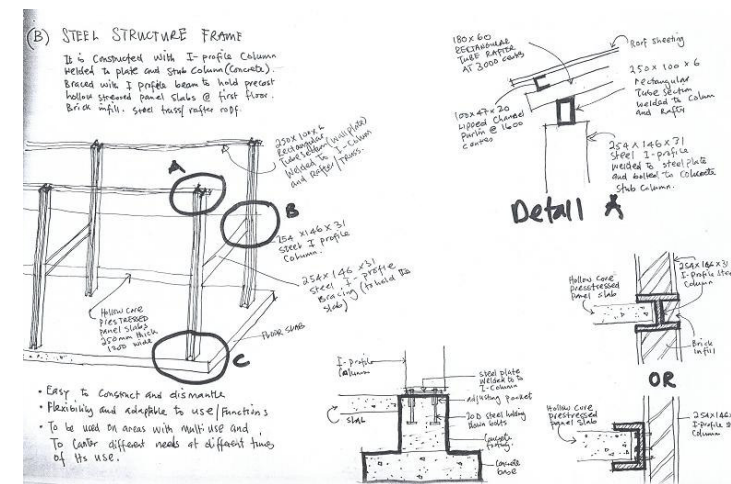 (B) STEEL STRUCTURE FRAME
It is Constructed with I-profile Column
Welded to plate and Stub Column (Concrete).
Braced with I profile beam to hold precast
hollow stressed panel slabs @ first floor.
Brick infill. Steel truss/rafter roof.
250x100x6
Rectangular
Tube Section (wall plate)
Welded to I-Column
and Rafter/TRUSS.
A
B
254x146x31
Steel I profile
Column.
254x146x31
Steel I-profile
Bracing (to hold the
slab)
Hollow Core
PRESTRESSED
panel slabs
250mm thick
1200 wide
FLOOR SLAB
C
• Easy to Construct and dismantle
• Flexibility and adaptable to use/functions
• To be used on areas with multi use and
To Canter different needs at different times
of its use.
180x60
RECTANGULAR
TUBE RAFTER
AT 3000 centres
Roof Sheeting
250x100x6
Rectangular
Tube Section
welded to Column
and Rafter
100x47x20
Lipped Channel
Purlin @ 1600
254x146x31
Steel I-profile
Welded to steel plate
and bolted to Concrete
Stub Column.
Detail A
Hollow Core
prestressed
panel slab
254x146x31
I-profile Steel
Column
Brick
Infill
OR
Hollow Core
prestressed
panel slab
254x146
I-profile
Column
I-profile
Column
steel plate
welded to
I-Column
adjusting pocket
steel holding
down bolts
slab
Concrete
footing
Concrete
base